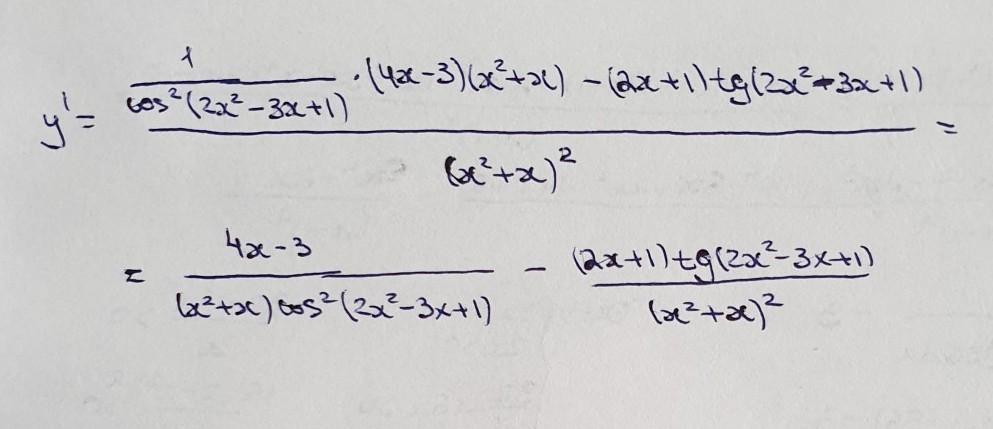 y' = (1/cos²(2x²-3x+1) · (4x-3)(x²+x) - (2x+1)tg(2x²-3x+1))/(x²+x)² =
= (4x-3)/((x²+x)cos²(2x²-3x+1)) - ((2x+1)tg(2x²-3x+1))/(x²+x)²